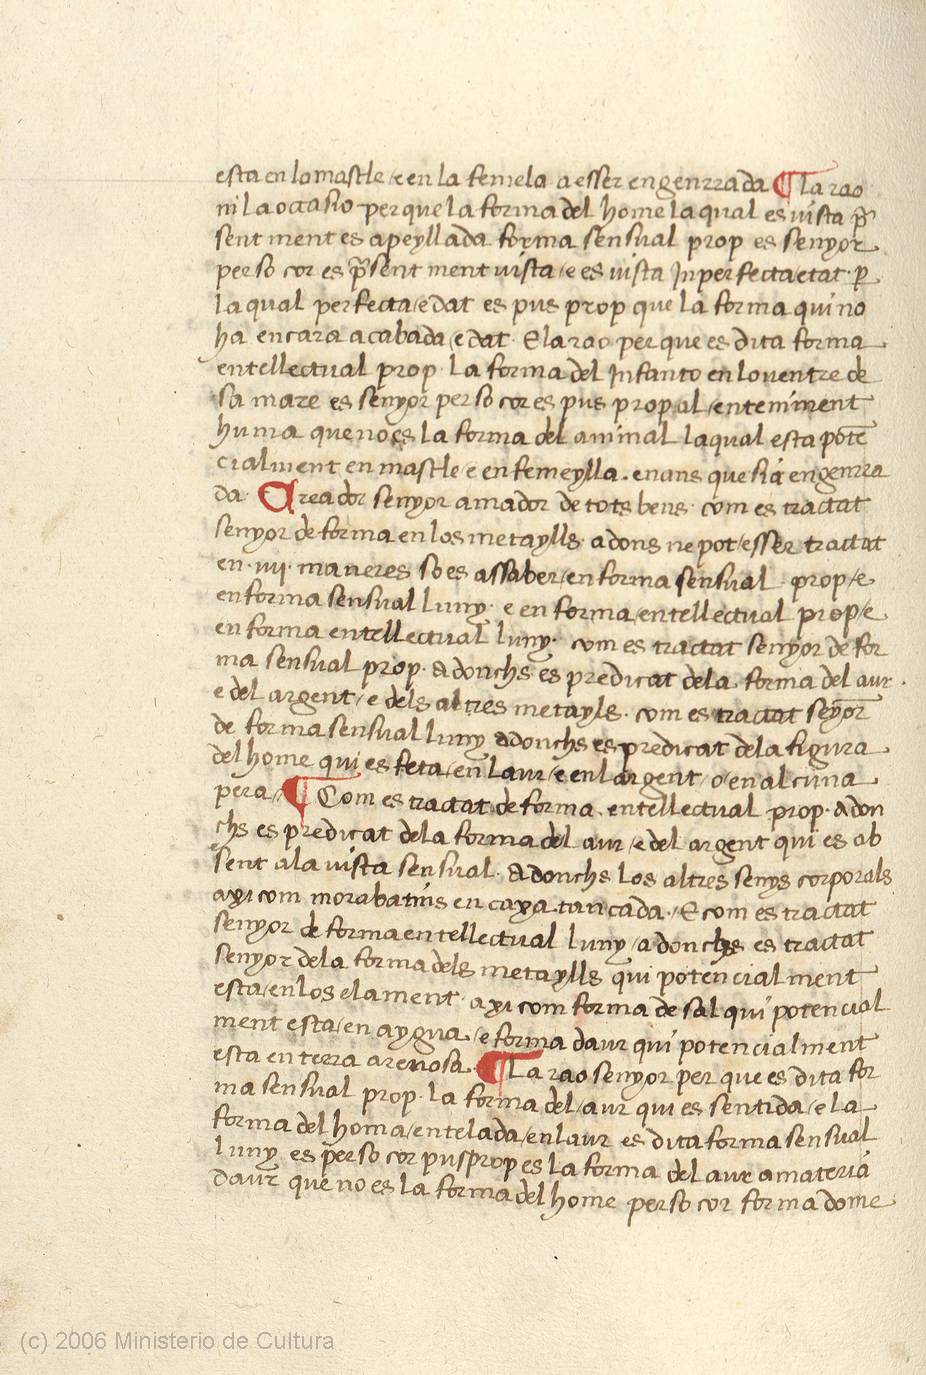 esta en lo mastle / e en la femela a esser engenrrada ¶ La rao
ni la occasio per que la forma del home la qual es vista p̃
sent ment es apeyllada forma sensual prop es senyor
per so cor es p̃sent ment vista / e es vista Inperfecta etat · p̱
la qual perfecta / edat es pus prop que la forma qui no
ha encara acabada / edat · E la rao per que es dita forma
entellectual prop · La forma del Infanto en lo ventre de
sa mare es senyor per so cor es pus prop al / enteniment
huma que no es la forma del animal la qual esta potẽ
cialment en mastle / e en femeylla · enans que sia engenrra
da · Creador senyor amador de tots bens · com es tractat
senyor de forma en los metaylls · adons ne pot / esser tractat
en · iiii · maneres so es assaber / en forma sensual prop / e
en forma sensual luny · e en forma / entellectual prop / e
en forma entellectual luny · com es tractat senyor de for
ma sensual prop · adonchs es predicat dela forma del aur ·
e del argent / e dels altres metayls · com es tractat seyõr
de forma sensual luny adonchs es predicat dela figura
del home qui es feta / en l aur / e en l argent / o / en alcuna
pera / ¶ Com es tractat de forma entellectual prop · adon
chs es predicat dela forma del aur / e del argent qui es ab
sent a la vista sensual · adonchs los altres senys corporals
axi com morabatins en caxa tancada · / E com es tractat
senyor de forma entellectual luny / adonchs es tractat
senyor dela forma dels metaylls qui potencialment
esta / en los elament · axi com forma de sal qui potencial
ment esta / en aygua / e forma daur qui potencialment
esta en terra arenosa · ¶ La rao senyor per que es dita for
ma sensual prop · la forma del / aur qui es sentida / e la
forma del homa / entelada / en l aur es dita forma sensual
luny es per so cor pus prop es la forma del aur a materia
daur que no es la forma del home per so cor forma dome
(c) 2006 Ministerio de Cultura